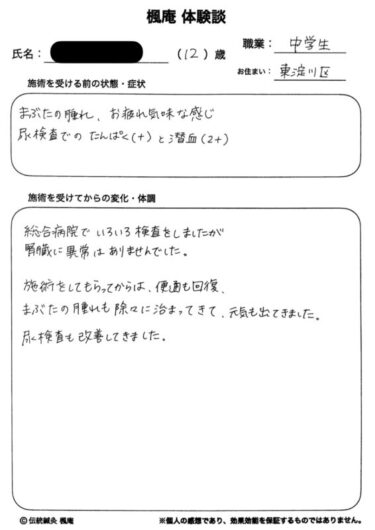 楓庵 体験談
氏名：
（12）歳
職業： 中学生
お住まい： 東淀川区
施術を受ける前の状態・症状
まぶたの腫れ、お疲れ気味な感じ
尿検査での たんぱく(+) と 潜血(2+)
施術を受けてからの変化・体調
総合病院で いろいろ検査をしましたが
腎臓に異常は ありませんでした。
施術をしてもらってからは、便通も回復、
まぶたの腫れも 除々に治まってきて、元気も出てきました。
尿検査も 改善してきました。
© 伝統鍼灸 楓庵
※個人の感想であり、効果効能を保証するものではありません。